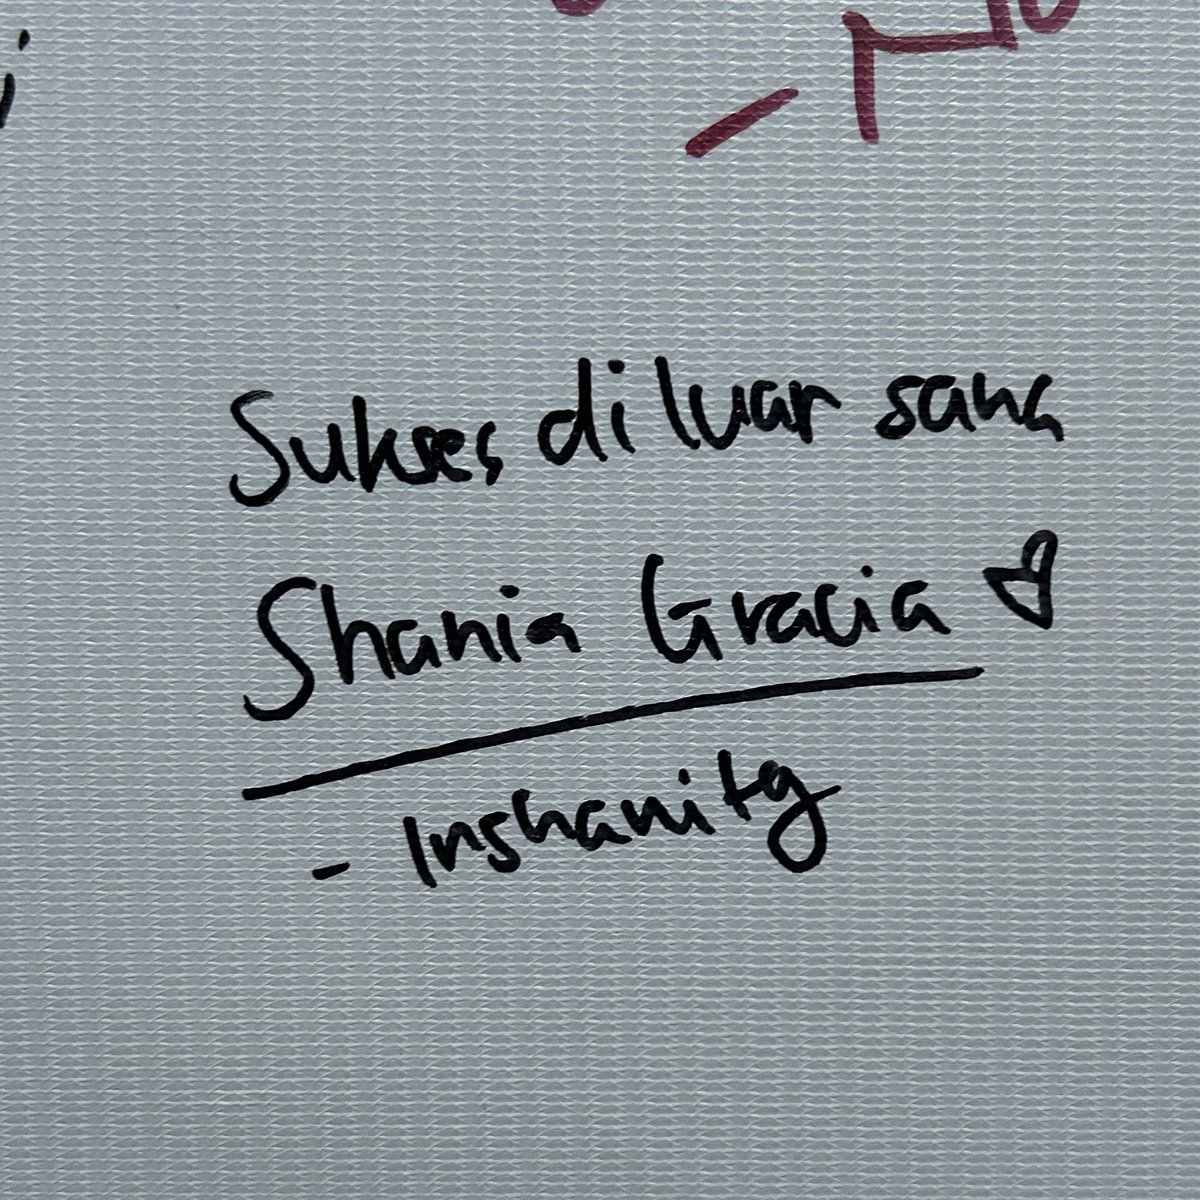 Sukses diluar sana
Shania Gracia ♡
- Inshanity